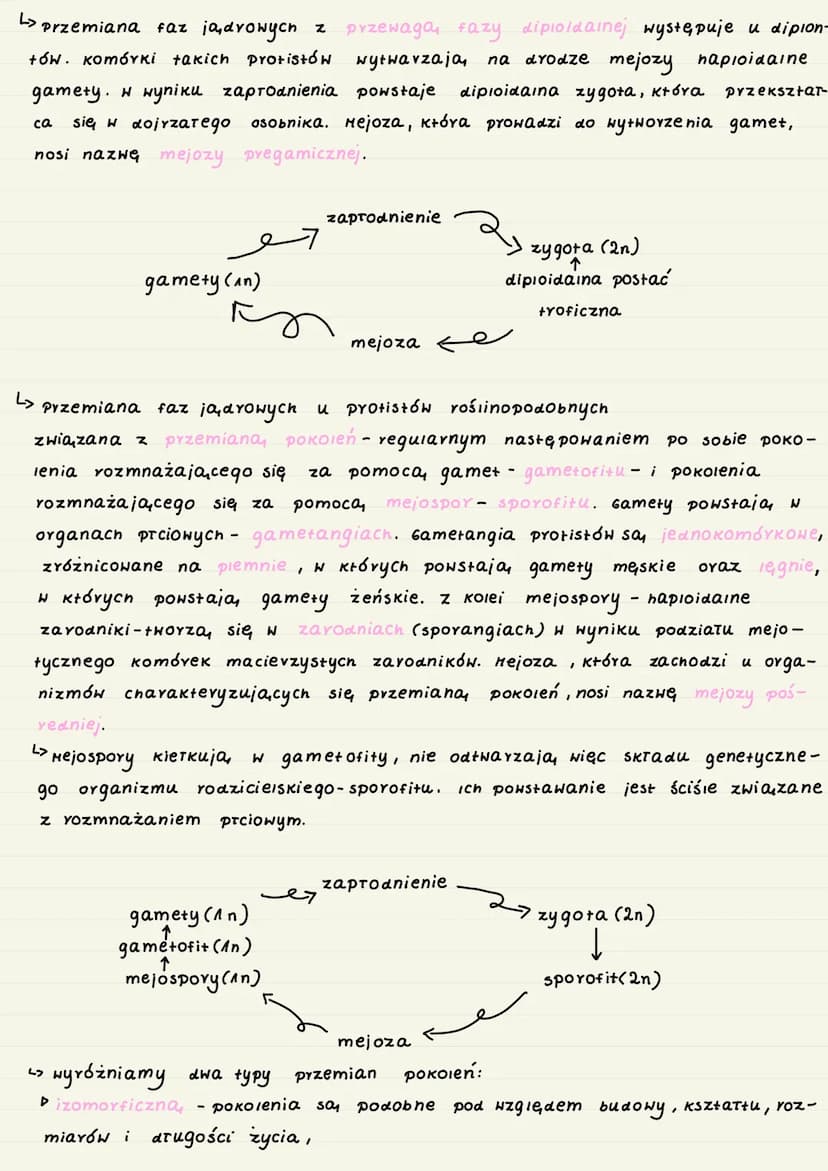 ↳ przemiana faz jądrowych z przewagą fazy diploidalnej występuje u diplon-
tów. komórki takich protistów wytwarzają na drodze mejozy haploidalne
gamety. w wyniku zapłodnienia powstaje diploidalna zygota, która przekształ-
ca się w dojrzałego osobnika. Mejoza, która prowadzi do wytworzenia gamet,
nosi nazwę mejozy pregamicznej.
zapłodnienie
zygota (2n)
gamety (1n)
↑
diploidalna postać
troficzna
mejoza
↳ przemiana faz jądrowych u protistów roślinopodobnych
związana z przemianą pokoleń - regularnym następowaniem po sobie poko-
lenia rozmnażającego się za pomocą gamet - gametofitu - i pokolenia
rozmnażającego się za pomocą mejospor - sporofitu. Gamety powstają w
organach płciowych - gametangiach. Gametangia protistów są jednokomórkowe,
zróżnicowane na plemnie, w których powstają gamety męskie oraz lęgnie,
w których powstają gamety żeńskie. z kolei mejospory - haploidalne
zarodniki - tworzą się w zarodniach (sporangiach) w wyniku podziału mejo-
tycznego komórek macierzystych zarodników. Mejoza, która zachodzi u orga-
nizmów charakteryzujących się przemianą pokoleń, nosi nazwę mejozy poś-
redniej.
↳ Mejospory kiełkują w gametofity, nie odtwarzają więc składu genetyczne-
go organizmu rodzicielskiego - sporofitu. ich powstawanie jest ściśle związane
z rozmnażaniem płciowym.
zapłodnienie
gamety (1n)
zygota (2n)
↑
↓
gametofit (1n)
↑
mejospory (1n)
sporofit (2n)
mejoza
↳ wyróżniamy dwa typy przemian pokoleń:
▷ izomorficzną - pokolenia są podobne pod względem budowy, kształtu, roz-
miarów i długości życia,